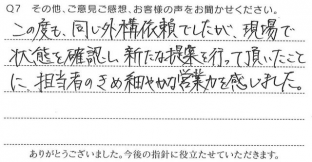 Q7 その他、ご意見ご感想、お客様の声をお聞かせください。
この度も、同じ外構依頼でしたが、現場で
状態を確認し、新たな提案を行って頂いたこと
に、担当者のきめ細やかな営業力を感じました。
ありがとうございました。今後の指針に役立たせていただきます。